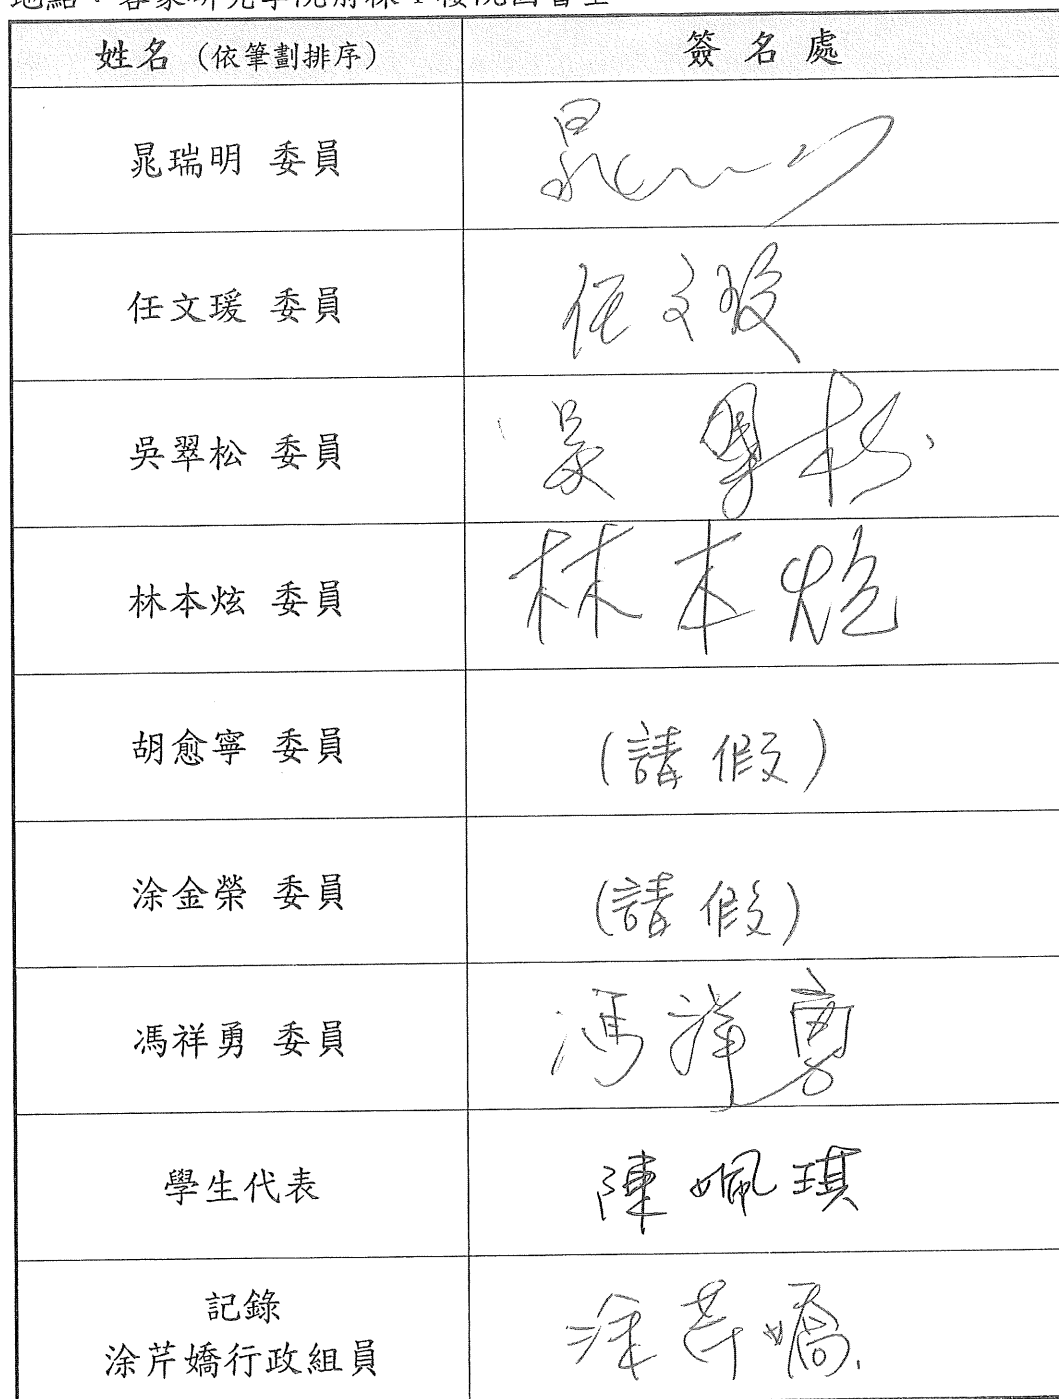 姓名（依筆劃排序） 簽名處
晁瑞明 委員
任文瑗 委員 任文瑗
吳翠松 委員 吳翠松
林本炫 委員 林本炫
胡愈寧 委員 (請假)
涂金榮 委員 (請假)
馮祥勇 委員 馮祥勇
學生代表 陳姵琪
記錄
涂芹嬌行政組員 涂芹嬌